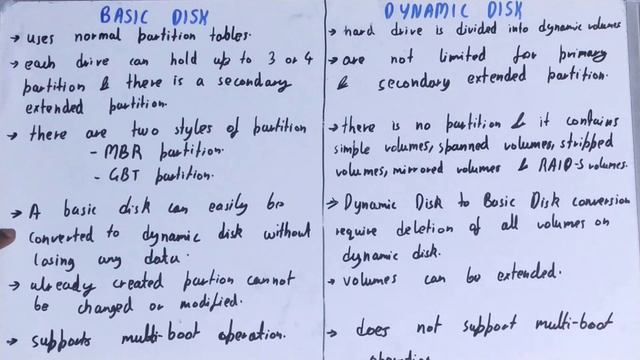 BASIC DISK
→ uses normal partition tables.
→ each drive can hold up to 3 or 4
partition & there is a secondary
extended partition.
→ there are two styles of partition
- MBR partition.
- GBT partition.
→ A basic disk can easily be
converted to dynamic disk without
losing any data.
→ already created partion cannot
be changed or modified.
→ supports multi-boot operation.
DYNAMIC DISK
→ hard drive is divided into dynamic volumes
→ are not limited for primary
& secondary extended partition.
→ there is no partition & it contains
simple volumes, spanned volumes, stripped
volumes, mirrored volumes & RAID-5 volumes.
→ Dynamic Disk to Basic Disk conversion
require deletion of all volumes on
dynamic disk.
→ volumes can be extended.
→ does not support multi-boot